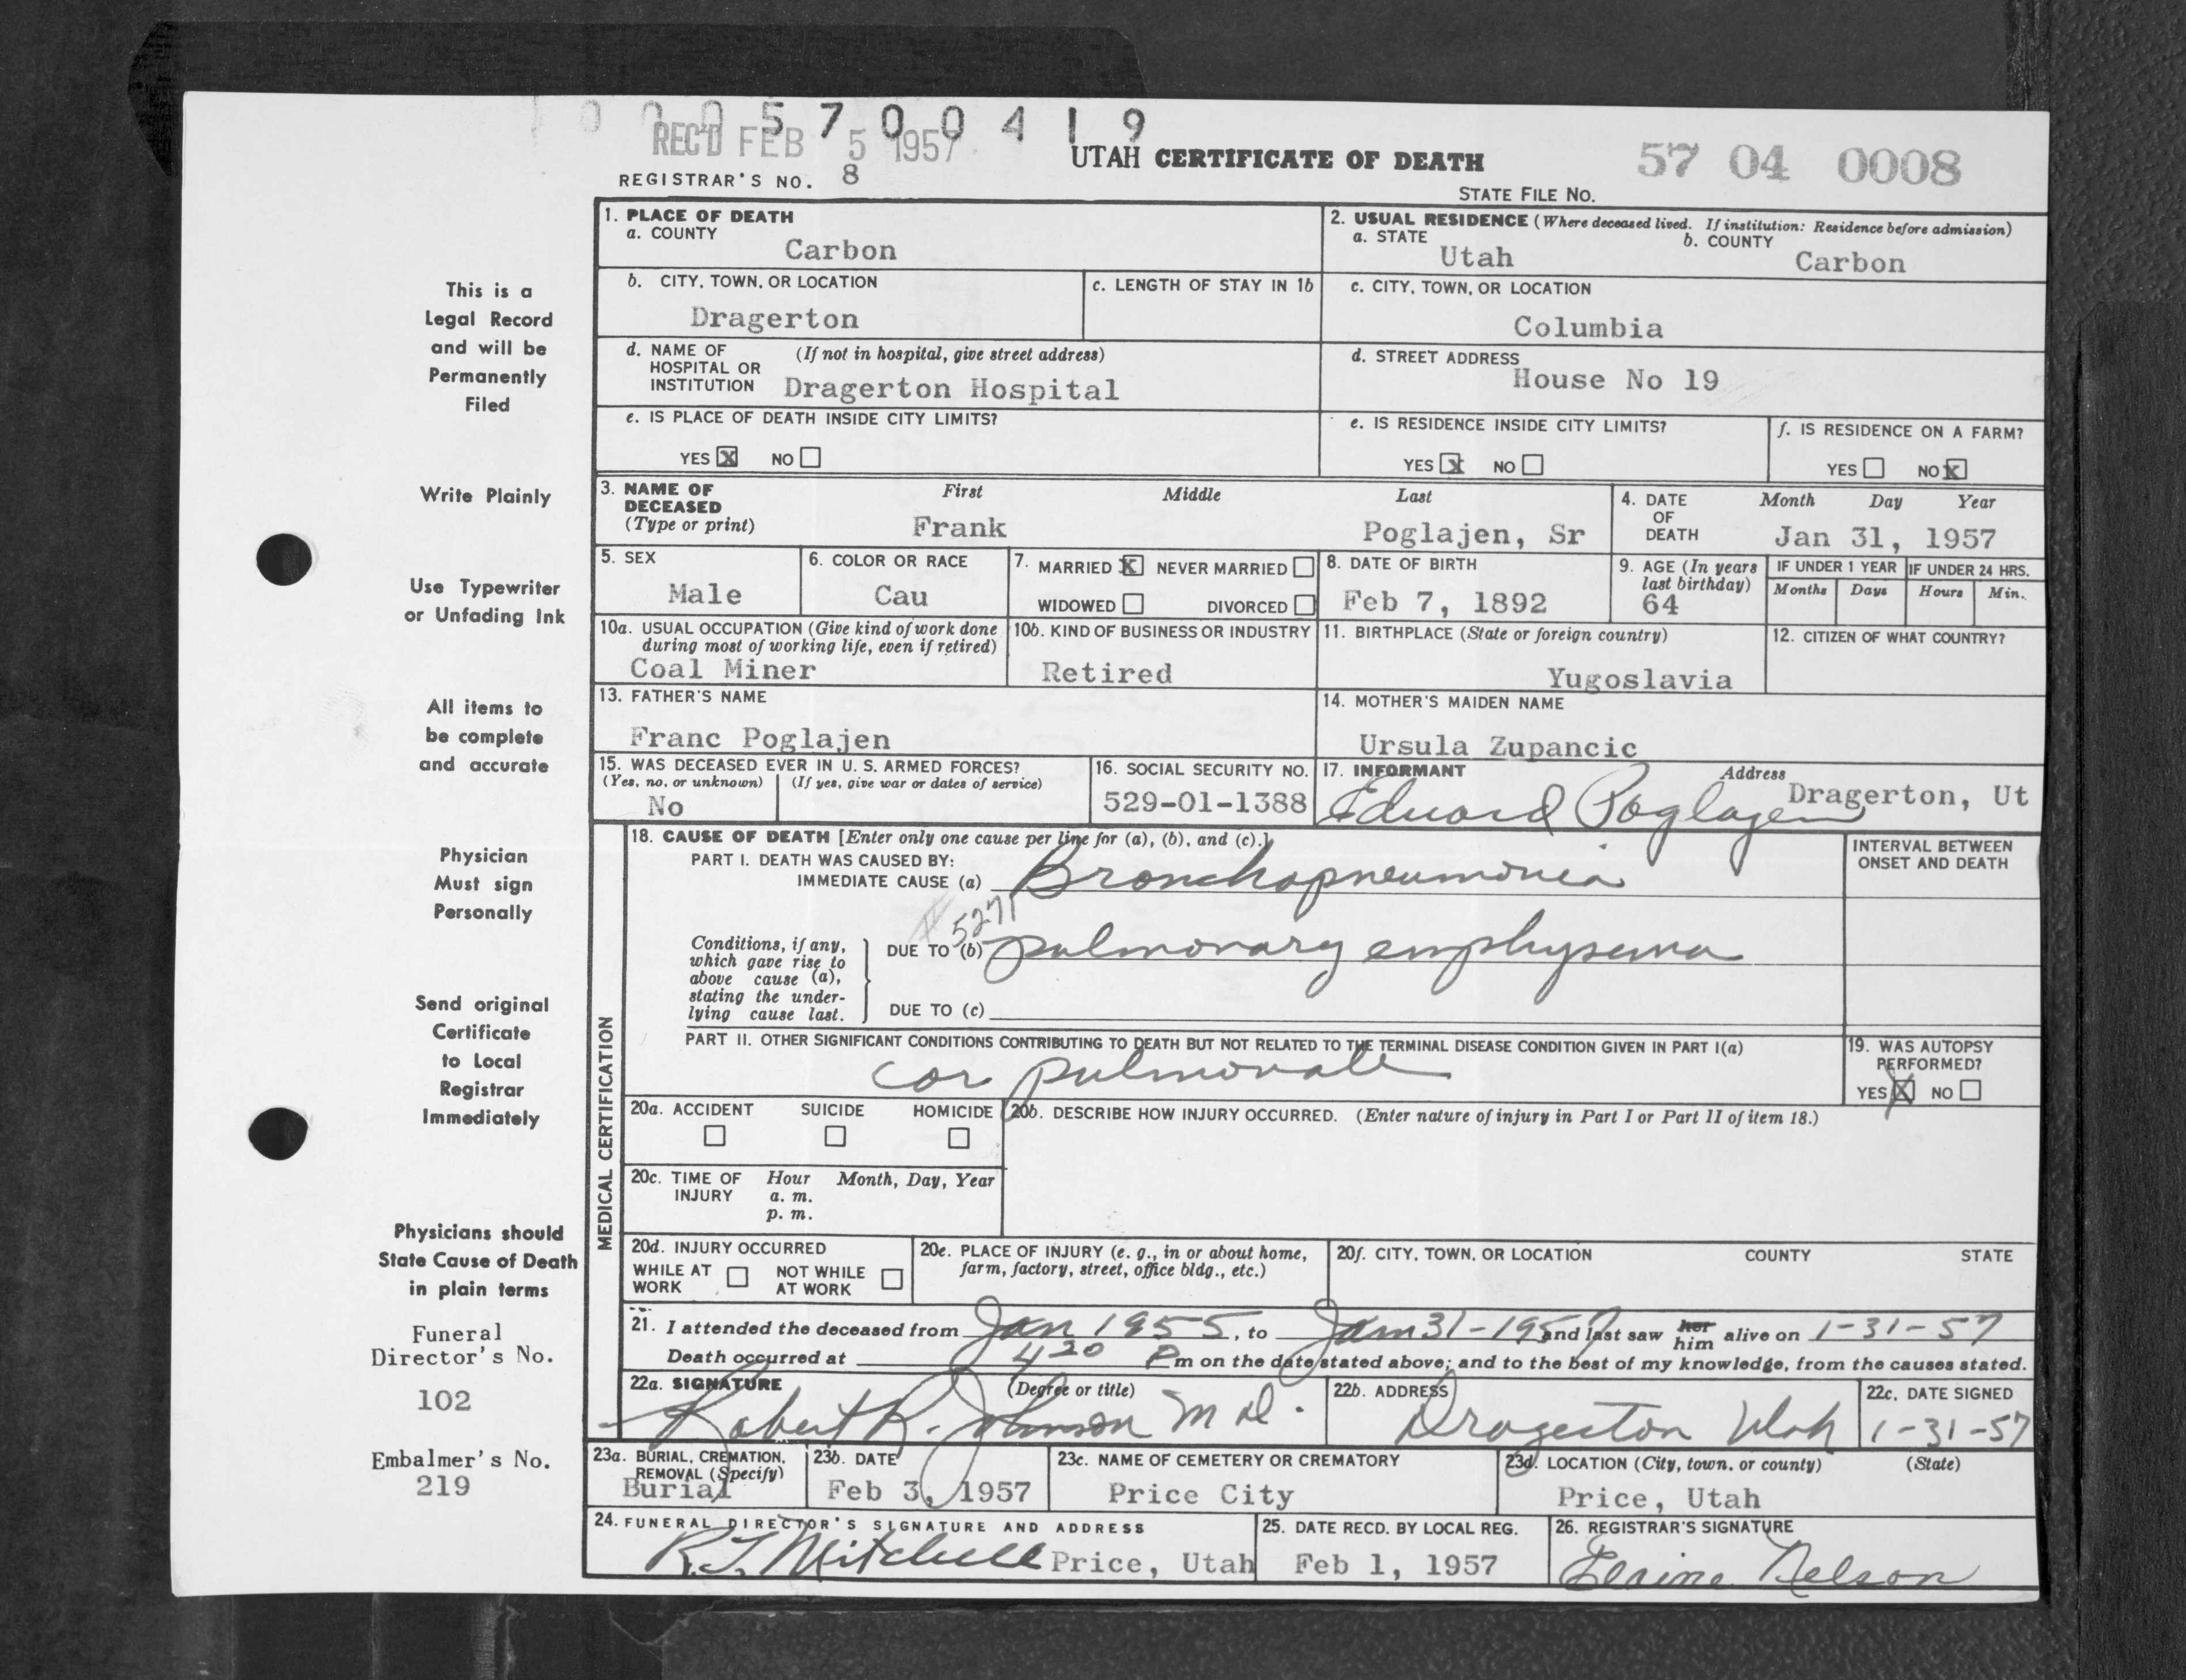 0005700419
REC'D FEB 5 1957
UTAH CERTIFICATE OF DEATH
57 04 0008
REGISTRAR'S NO. 8
STATE FILE NO.
This is a
Legal Record
and will be
Permanently
Filed
Write Plainly
Use Typewriter
or Unfading Ink
All items to
be complete
and accurate
Physician
Must sign
Personally
Send original
Certificate
to Local
Registrar
Immediately
Physicians should
State Cause of Death
in plain terms
Funeral
Director's No.
102
Embalmer's No.
219
1. PLACE OF DEATH
a. COUNTY
Carbon
2. USUAL RESIDENCE (Where deceased lived. If institution: Residence before admission)
a. STATE b. COUNTY
Utah Carbon
b. CITY, TOWN, OR LOCATION
Dragerton
c. LENGTH OF STAY IN 1b
c. CITY, TOWN, OR LOCATION
Columbia
d. NAME OF (If not in hospital, give street address)
HOSPITAL OR
INSTITUTION Dragerton Hospital
d. STREET ADDRESS
House No 19
e. IS PLACE OF DEATH INSIDE CITY LIMITS?
YES X NO
e. IS RESIDENCE INSIDE CITY LIMITS?
YES X NO
f. IS RESIDENCE ON A FARM?
YES NO X
3. NAME OF First Middle Last
DECEASED
(Type or print) Frank Poglajen, Sr
4. DATE Month Day Year
OF
DEATH Jan 31, 1957
5. SEX
Male
6. COLOR OR RACE
Cau
7. MARRIED X NEVER MARRIED
WIDOWED DIVORCED
8. DATE OF BIRTH
Feb 7, 1892
9. AGE (In years
last birthday)
64
IF UNDER 1 YEAR IF UNDER 24 HRS.
Months Days Hours Min.
10a. USUAL OCCUPATION (Give kind of work done
during most of working life, even if retired)
Coal Miner
10b. KIND OF BUSINESS OR INDUSTRY
Retired
11. BIRTHPLACE (State or foreign country)
Yugoslavia
12. CITIZEN OF WHAT COUNTRY?
13. FATHER'S NAME
Franc Poglajen
14. MOTHER'S MAIDEN NAME
Ursula Zupancic
15. WAS DECEASED EVER IN U. S. ARMED FORCES?
(Yes, no, or unknown) (If yes, give war or dates of service)
No
16. SOCIAL SECURITY NO.
529-01-1388
17. INFORMANT Address
Eduard Poglajen Dragerton, Ut
MEDICAL CERTIFICATION
18. CAUSE OF DEATH [Enter only one cause per line for (a), (b), and (c).]
PART I. DEATH WAS CAUSED BY:
IMMEDIATE CAUSE (a) Bronchopneumonia
INTERVAL BETWEEN
ONSET AND DEATH
5271
Conditions, if any,
which gave rise to
above cause (a),
stating the under-
lying cause last.
DUE TO (b) pulmonary emphysema
DUE TO (c)
PART II. OTHER SIGNIFICANT CONDITIONS CONTRIBUTING TO DEATH BUT NOT RELATED TO THE TERMINAL DISEASE CONDITION GIVEN IN PART I(a)
cor pulmonale
19. WAS AUTOPSY
PERFORMED?
YES X NO
20a. ACCIDENT SUICIDE HOMICIDE
20b. DESCRIBE HOW INJURY OCCURRED. (Enter nature of injury in Part I or Part II of item 18.)
20c. TIME OF Hour Month, Day, Year
INJURY a. m.
p. m.
20d. INJURY OCCURRED
WHILE AT NOT WHILE
WORK AT WORK
20e. PLACE OF INJURY (e. g., in or about home,
farm, factory, street, office bldg., etc.)
20f. CITY, TOWN, OR LOCATION COUNTY STATE
21. I attended the deceased from Jan 1955, to Jan 31-1957 and last saw her him alive on 1-31-57
Death occurred at 4 20 P m on the date stated above; and to the best of my knowledge, from the causes stated.
22a. SIGNATURE (Degree or title)
Robert R. Johnson M D.
22b. ADDRESS
Dragerton Utah
22c. DATE SIGNED
1-31-57
23a. BURIAL, CREMATION,
REMOVAL (Specify)
Burial
23b. DATE
Feb 3, 1957
23c. NAME OF CEMETERY OR CREMATORY
Price City
23d. LOCATION (City, town, or county) (State)
Price, Utah
24. FUNERAL DIRECTOR'S SIGNATURE AND ADDRESS
R.J. Mitchell Price, Utah
25. DATE RECD. BY LOCAL REG.
Feb 1, 1957
26. REGISTRAR'S SIGNATURE
Elaine Nelson